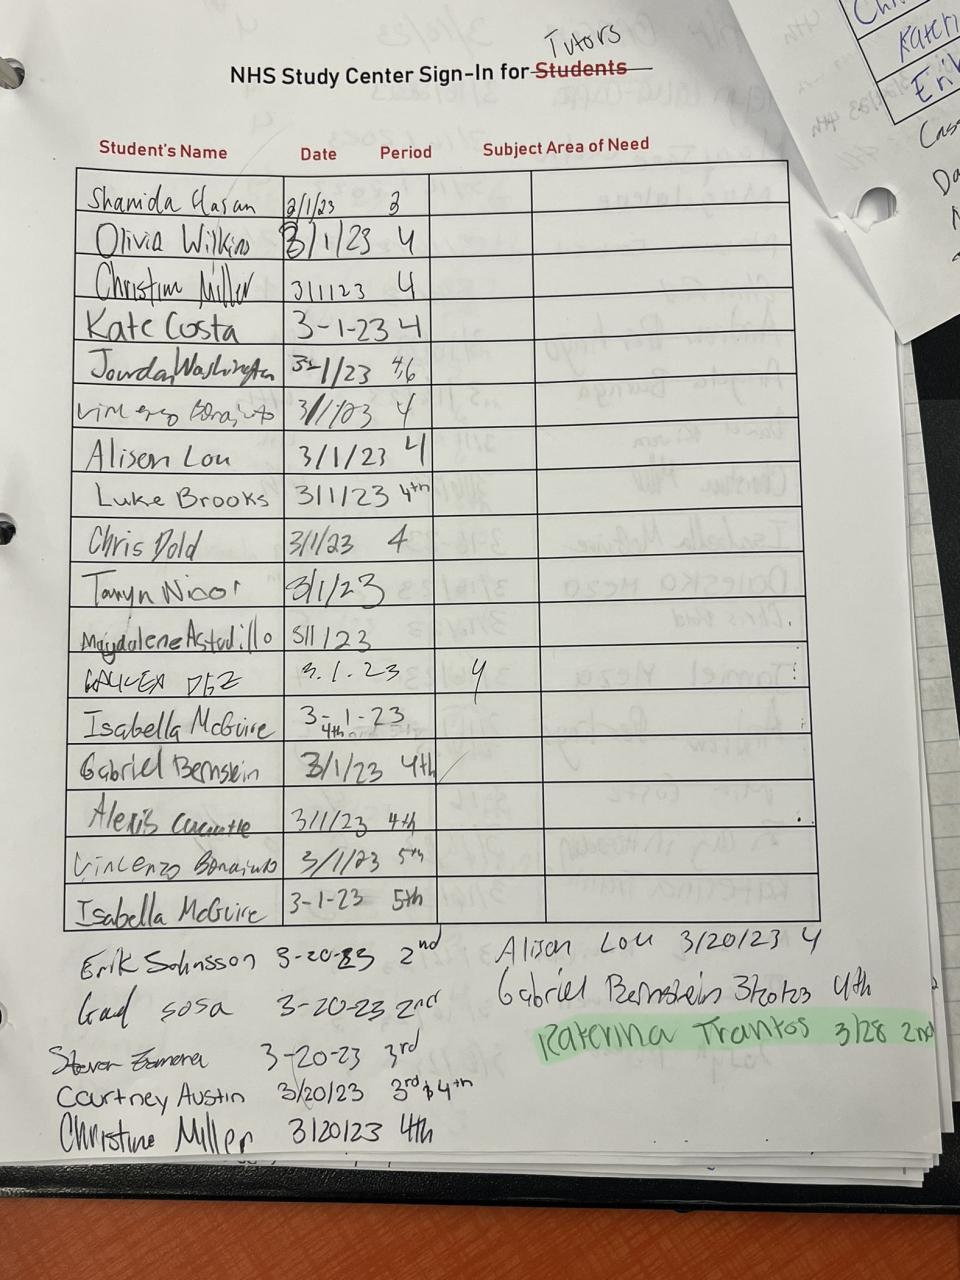 Tutors
NHS Study Center Sign-In for Students
Student's Name Date Period Subject Area of Need
Shamida Hasan 3/1/23 3
Olivia Wilkins 3/1/23 4
Christine Miller 3/1/23 4
Kate Costa 3-1-23 4
Jourdan Washington 3-1/23 4,6
Vincenzo Bonaiuto 3/1/23 4
Alison Lou 3/1/23 4
Luke Brooks 3/1/23 4th
Chris Dold 3/1/23 4
Taryn 3/1/23
Magdalene Astudillo 3/1/23
3.1.23 4
Isabella McGuire 3-1-23
4th
Gabriel Bernstein 3/1/23 4th
Alexis 3/1/23 4th
Vincenzo Bonaiuto 3/1/23 5th
Isabella McGuire 3-1-23 5th
Erik 3-20-23 2nd
Gad Sosa 3-20-23 2nd
Steven 3-20-23 3rd
Courtney Austin 3/20/23 3rd & 4th
Christine Miller 3/20/23 4th
Alison Lou 3/20/23 4
Gabriel Bernstein 3/20/23 4th
Katerina Trantos 3/28 2nd
Katen
Erik